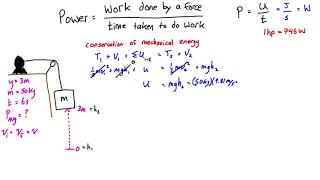 Power = work done by a force
time taken to do work
P = U/t = J/s = W
1hp = 746W
conservation of mechanical energy
T₁ + V₁ + ΣU₁₋₂ = T₂ + V₂
½mv₁² + mgh₁ + U = ½mv₂² + mgh₂
0
U = mgh₂ = (50kg)(9.81m/s²
M
y = 3m
m = 50kg
t = 6s
P = ?
v₁ = v₂ = v
3m = h₂
0 = h₁